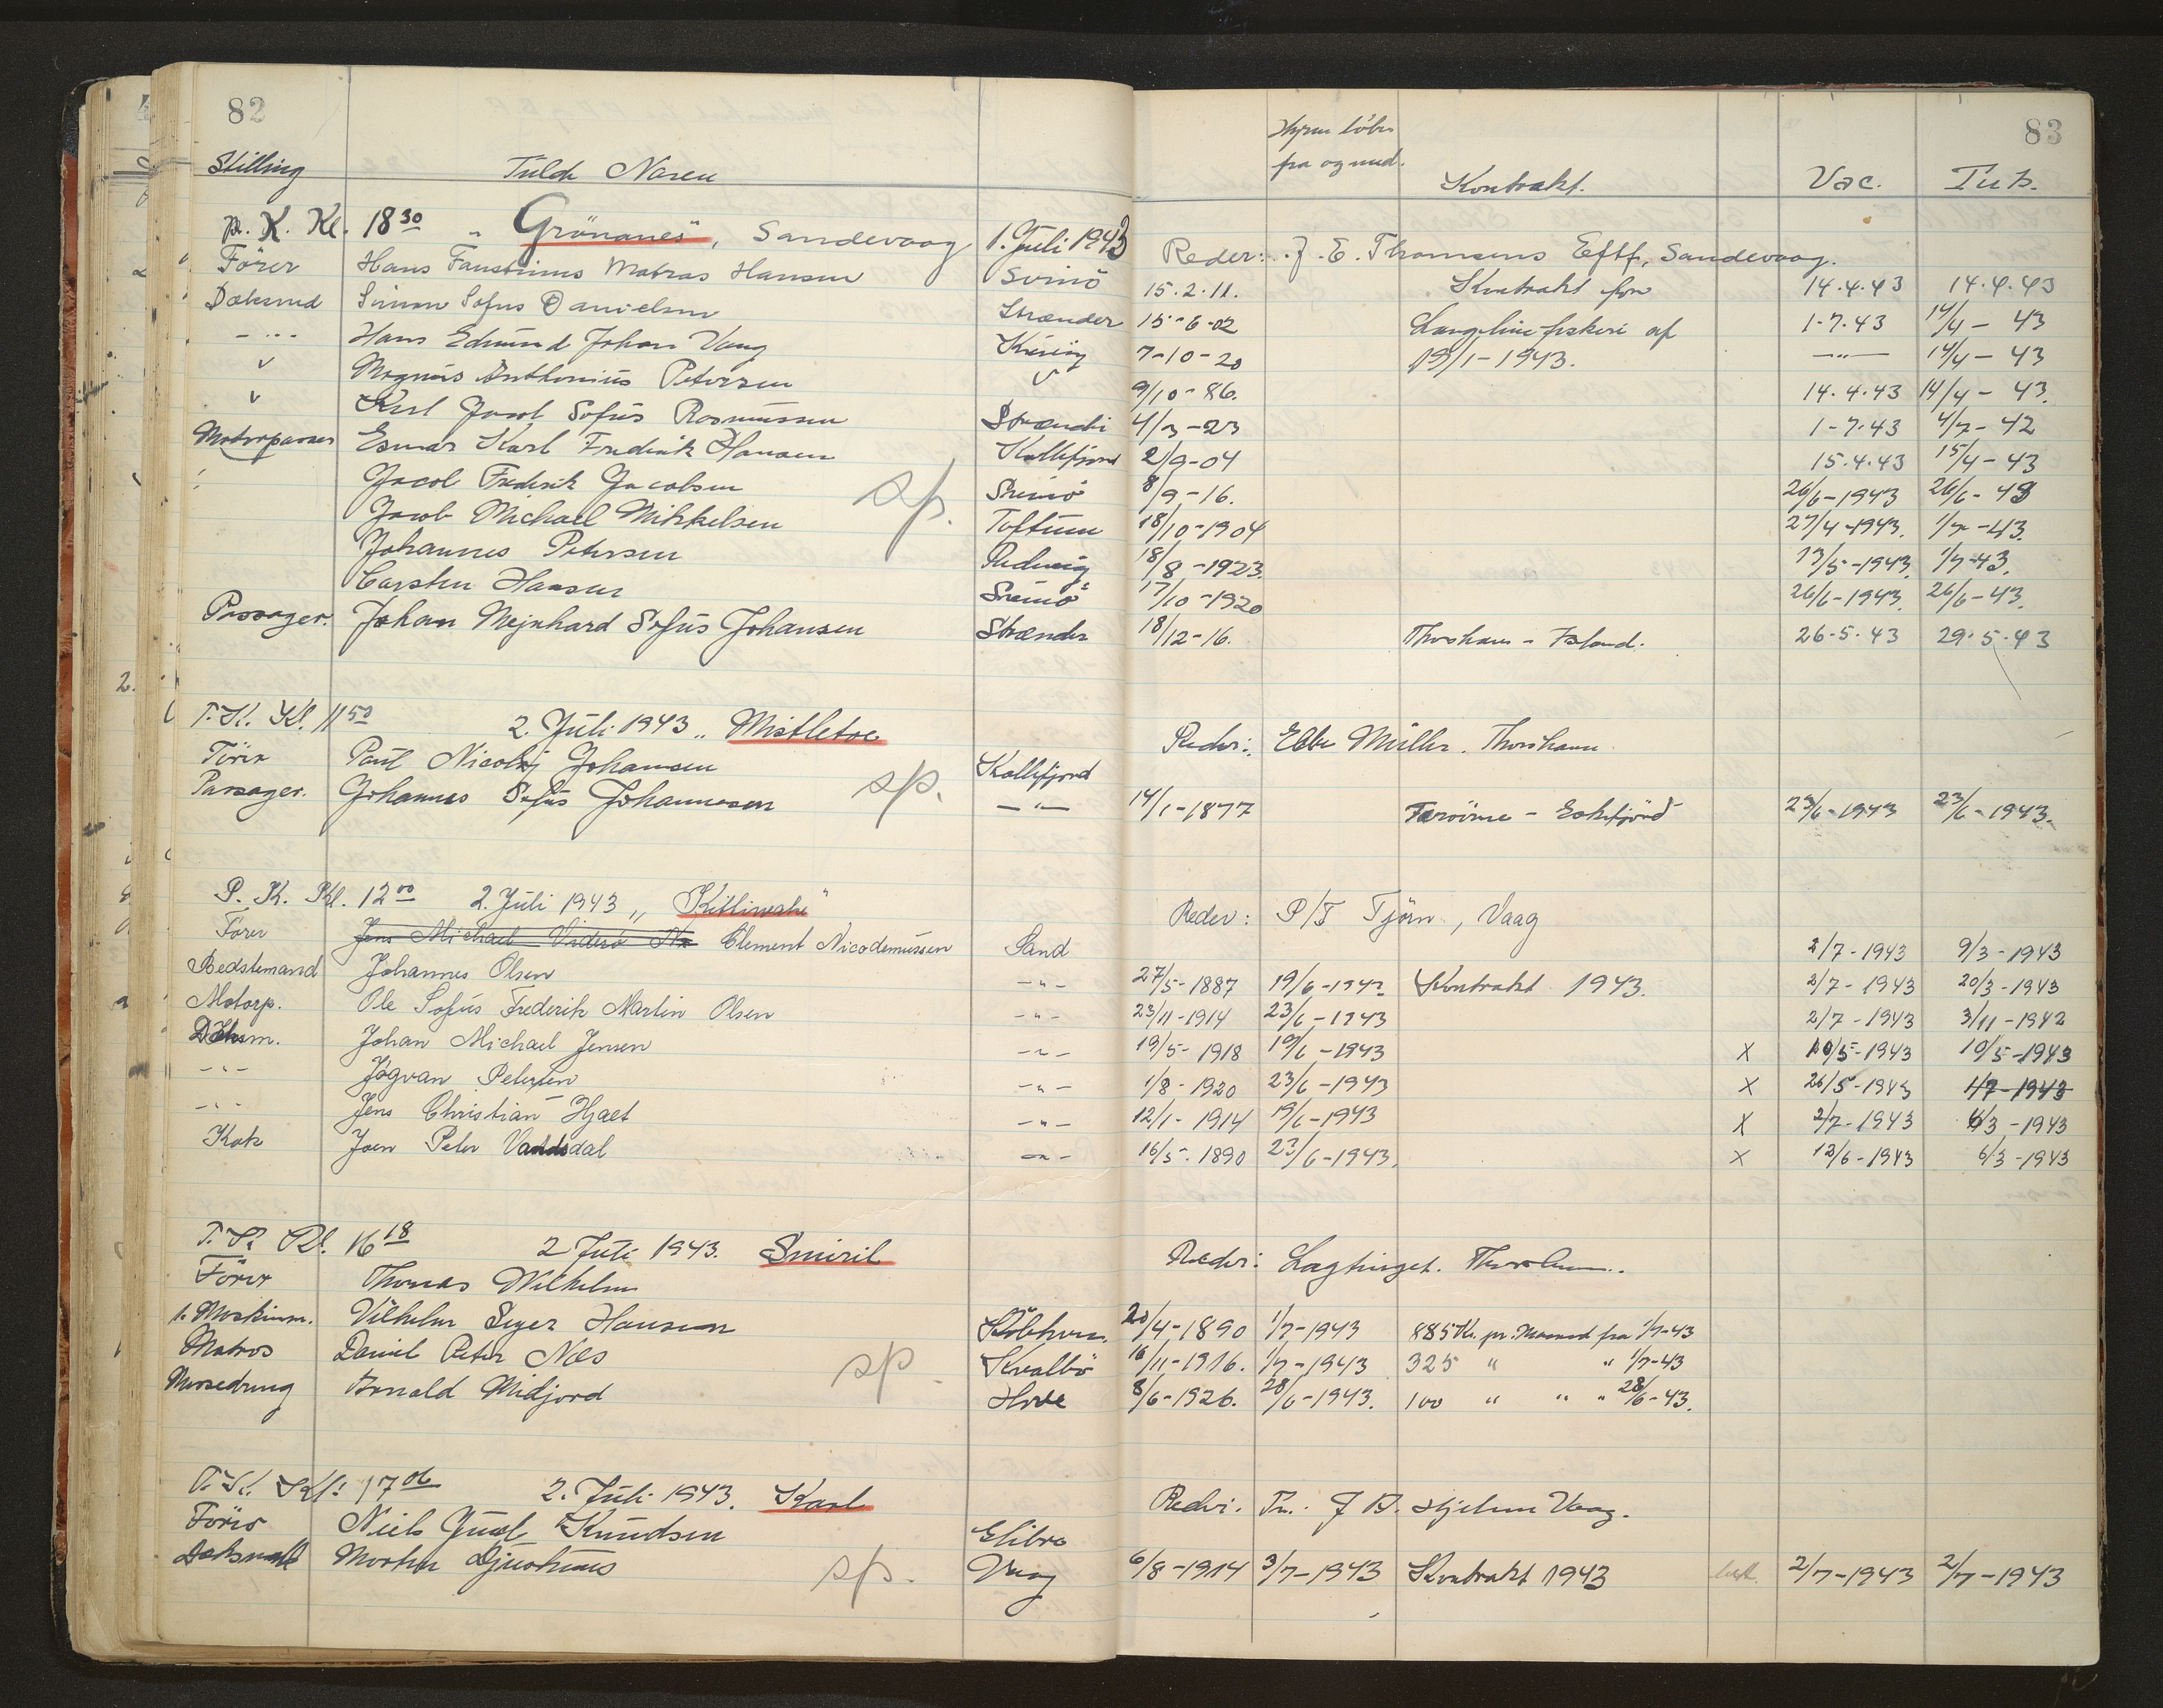 82
83
Stilling Fulde Navn Hyren løber fra og med. Kontrakt. Vac. Tub.
P. K. Kl. 18 30 „Grönanes", Sandevaag 1. Juli 1943 Reder: J. E. Thomsens Eftf, Sandevaag.
Förer Hans Faustinus Matras Hansen Svinö 15.2.11. Kontrakt for 14.4.43 14.4.43
Dæksmd Simon Sofus Danielsen Strænder 15-6-02 Langlinefiskeri af 1-7.43 14/4-43
-"- Hans Edmund Johan Vang 7-10-20 19/1-1943. -"- 14/4-43
v Magnus Anthonius Petersen v 9/10-86. 14.4.43 14/4-43.
v Karl Jacob Sofus Rasmussen Strændr 4/3-23 1-7.43 4/7-42
Motorpasser Esmar Karl Frederik Hansen Kollefjord 2/9-04 15.4.43 15/4-43
Jacob Frederik Jacobsen sp. Svinö 8/9-16. 26/6-1943 26/6-43
Jacob Michael Mikkelsen Toftum 18/10-1904 27/4-1943. 1/7-43.
Johannes Petersen 18/8-1923. 13/5-1943. 1/7-43.
Carsten Hansen Svinö 17/10-1920 26/6-1943. 26/6-43.
Passager. Johan Mejnhard Sofus Johansen Strænder 18/12-16. Thorshavn - Island. 26-5.43 29.5.43
T. K. Kl. 11 50 2. Juli 1943 „ Mistletoe Reder: Ebbe Müller. Thorshavn
Förer Poul Nicolaj Johansen Kollefjord
Passager. Johannes Sofus Johannesen sp. -"- 14/1-1877 Færöerne - Eskifjörd 23/6-1943 23/6-1943.
P. K. Kl. 12 00 2. Juli 1943 „Kittiwake" Reder: P/F Tjörn, Vaag
Förer Jens Michael Viderö Clement Nicodemussen Sand 2/7-1943 9/3-1943
Bedstemand Johannes Olsen -"- 27/5-1887 19/6-1943 Kontrakt 1943. 2/7-1943 20/3-1943
Motorp. Ole Sofus Frederik Martin Olsen -"- 23/11-1914 23/6-1943 2/7-1943 3/11-1942
Dæksm. Johan Michael Jensen -"- 19/5-1918 19/6-1943 x 10/5-1943 10/5-1943
-"- Jögvan Petersen -"- 1/8-1920 23/6-1943 x 26/5-1943 1/7-1943
-"- Jens Christian Hjalt -"- 12/1-1914 19/6-1943 x 2/7-1943 6/3-1943
Kok Joen Peter Vandsdal -"- 16/5-1890 23/6-1943. x 12/6-1943 6/3-1943
T. K. Kl. 16 18 2 Juli 1943. Smiril Reder: Lagtinget. Thorshavn.
Förer Thomas Wilhelm
1. Maskinm. Vilhelm Seyer Hansen Köbhvn. 20/4-1890 1/7-1943 885 Kr. pr. Maaned fra 1/7-43
Matros Daniel Peter Næs sp. Kvalbö 16/11-1916. 1/7-1943 325 " " 1/7-43
Messedreng Arnold Midjord Hove 8/6-1926. 28/6-1943. 100 " " " 28/6-43.
T. K. Kl. 17 06 2. Juli 1943. Karl Reder. J. B. Hjelm Vaag.
Förer Niels Knudsen
Dæksmd Morten Djurhuus sp. Vaag 6/8-1914 3/7-1943 Kontrakt 1943 2/7-1943 2/7-1943